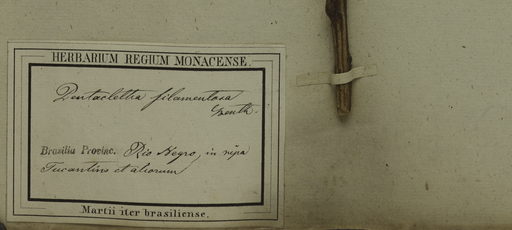 HERBARIUM REGIUM MONACENSE.
Pentaclethra filamentosa
Benth.
Brasilia Provinc. Rio Negro, in ripa
et aliorum
Martii iter brasiliense.